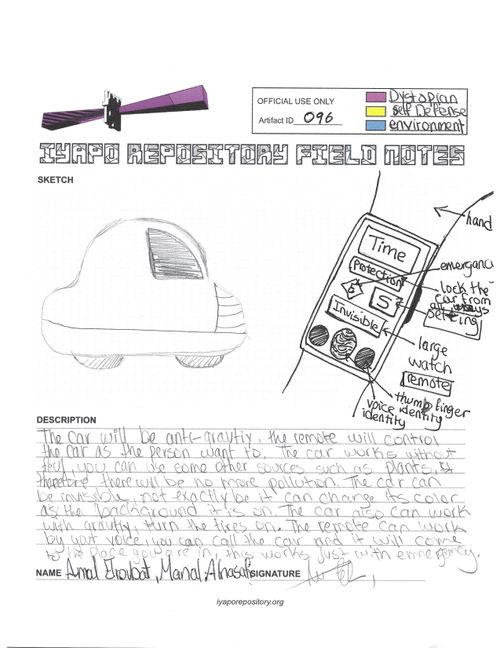 OFFICIAL USE ONLY
Artifact ID 096
Dystopian
self Defense
environment
IYAPO REPOSITORY FIELD NOTES
SKETCH
hand
Time
Protection
emerganc
lock the
car from
all
setting
E
S
Invisible
large
watch
remote
thump finger
identity
voice
identity
DESCRIPTION
The car will be anti-gravtiy, the remote will control
the car as the person want to. The car works without
feul, you can use some other sources such as plants,
therefore there will be no more pollution. The car can
be invisible, not exactly be it can change its color
as the background it is on. The car also can work
with gravtiy, turn the tires on. The remote can work
by your voice, you can call the car and it will come
to the place you are in, this works just with emergency.
NAME Amal , Manal SIGNATURE
iyaporepository.org